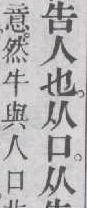 告人也。从口。从
意。然牛與人口